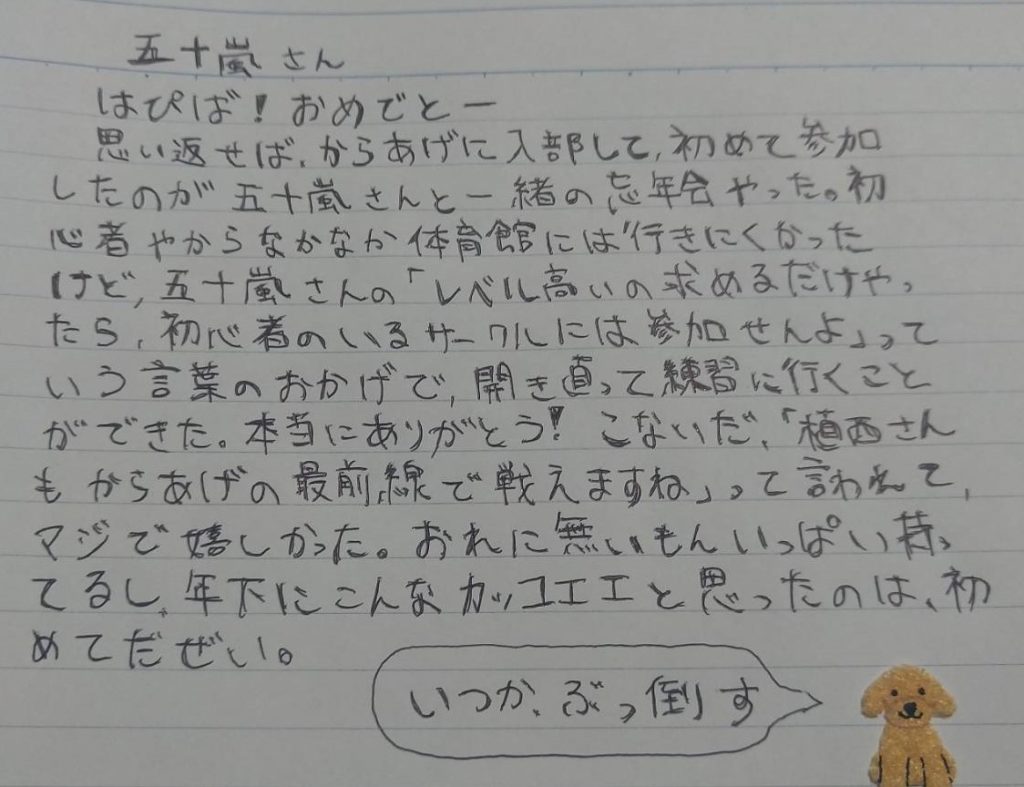 五十嵐さん
はぴば！おめでとー
思い返せば、からあげに入部して、初めて参加
したのが五十嵐さんと一緒の忘年会やった。初
心者やからなかなか体育館には行きにくかった
けど、五十嵐さんの「レベル高いの求めるだけやっ
たら、初心者のいるサークルには参加せんよ」って
いう言葉のおかげで、開き直って練習に行くこと
ができた。本当にありがとう！こないだ、「植西さん
もからあげの最前線で戦えますね」って言われて、
マジで嬉しかった。おれに無いもんいっぱい持っ
てるし、年下にこんなカッコエエと思ったのは、初
めてだぜい。
いつか、ぶっ倒す